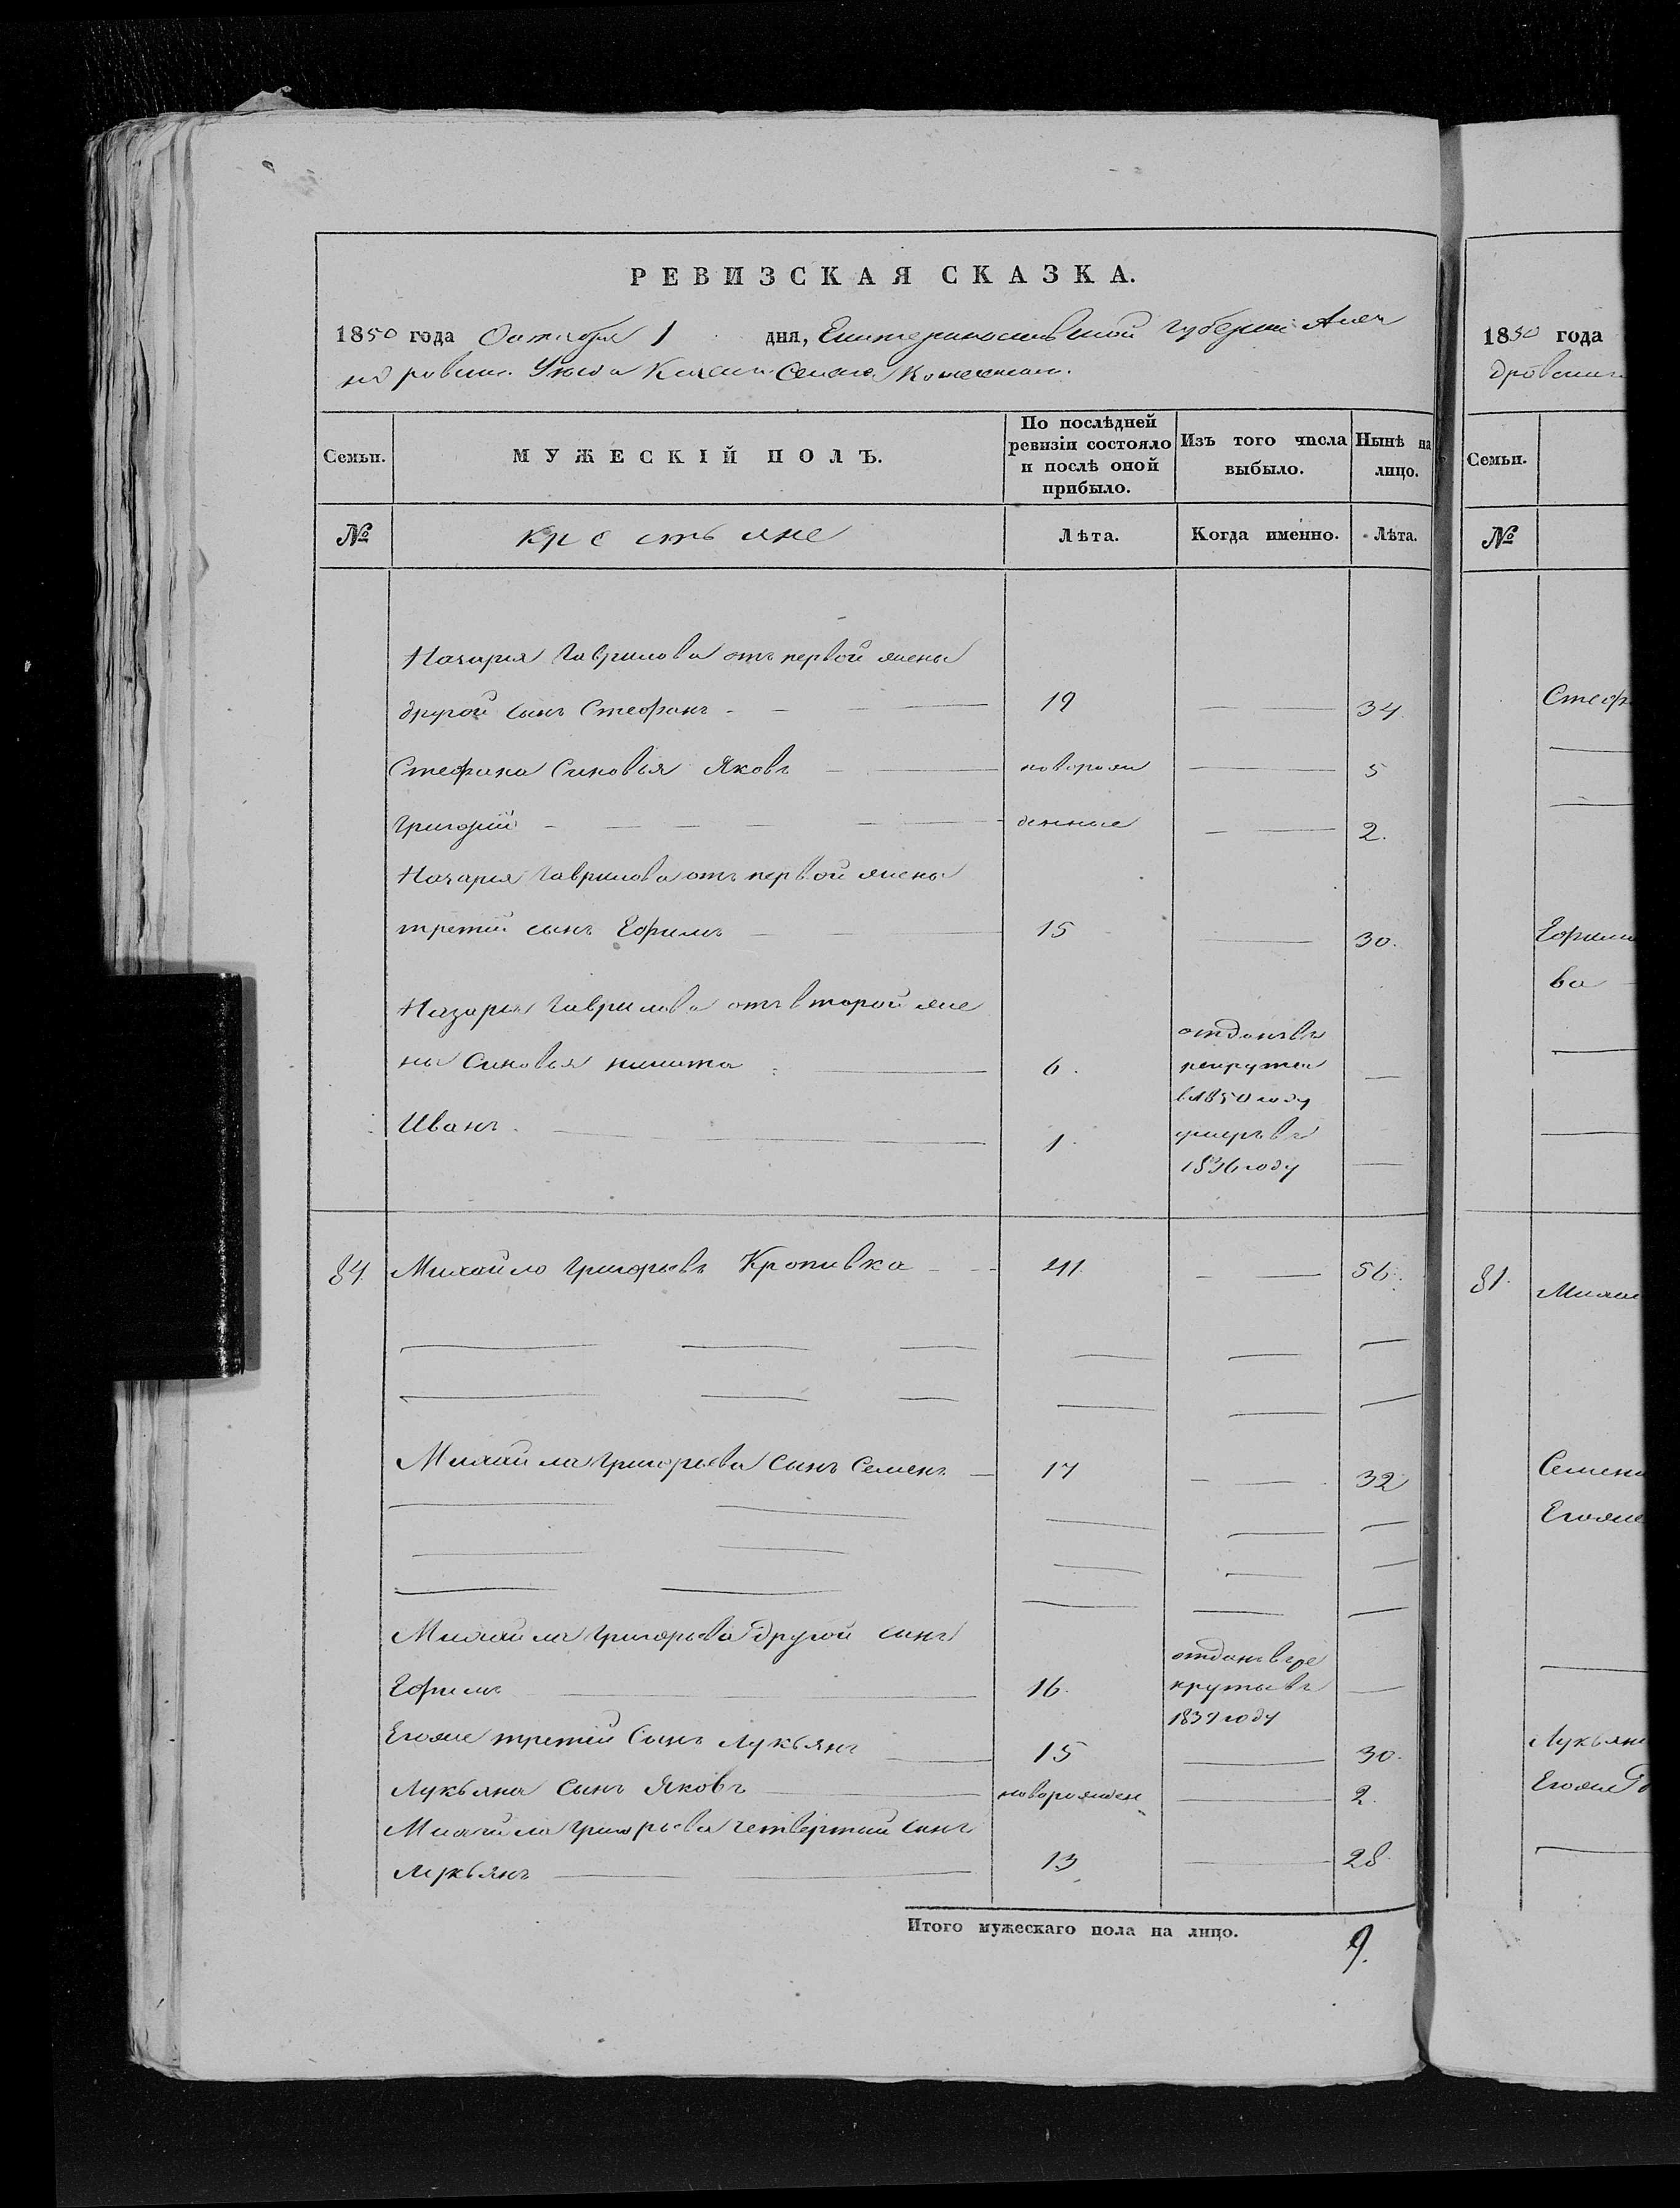 РЕВИЗСКАЯ СКАЗКА.
1850 года Октября 1 дня, Екатеринославской Губернии Алек
сандровскаго Уезда Казен. Селения
Семьи. МУЖЕСКІЙ ПОЛЪ. По послѣдней ревизіи состояло и послѣ оной прибыло. Изъ того числа выбыло. Нынѣ на лицо.
№ крестьяне Лѣта. Когда именно. Лѣта.
Назарія Гаврилова отъ первой жены
другой сынъ Стефанъ 19 34.
Стефана Синовья Яковъ новорож 5
Григорій денные 2.
Назарія Гаврилова отъ первой жены
третій сынъ Ефимъ 15 30.
Назарія Гаврилова отъ второй же
ны Синовья никита 6. отданъ въ рекруты в 1850 году
Иванъ. 1. умеръ въ 1836 году
84. Михайло Григорьевъ Кропивка 41. 56.
Михайла Григорьева сынъ Семенъ 17 32
Михайла Григорьева другой сынъ
Ефимъ 16. отданъ въ ре круты въ 1837 году
Егоже третій Сынъ Лукьянъ 15 30.
Лукьяна сынъ Яковъ новорожден 2.
Михайла Григорьева четвертый сынъ
Лукьянъ 13. 28.
Итого мужескаго пола на лицо. 9.
1850 года
дровскаго
Семьи.
№
Стеф
Ефима
ва
81. Михай
Семена
Егоже
Лукьяна
Егоже